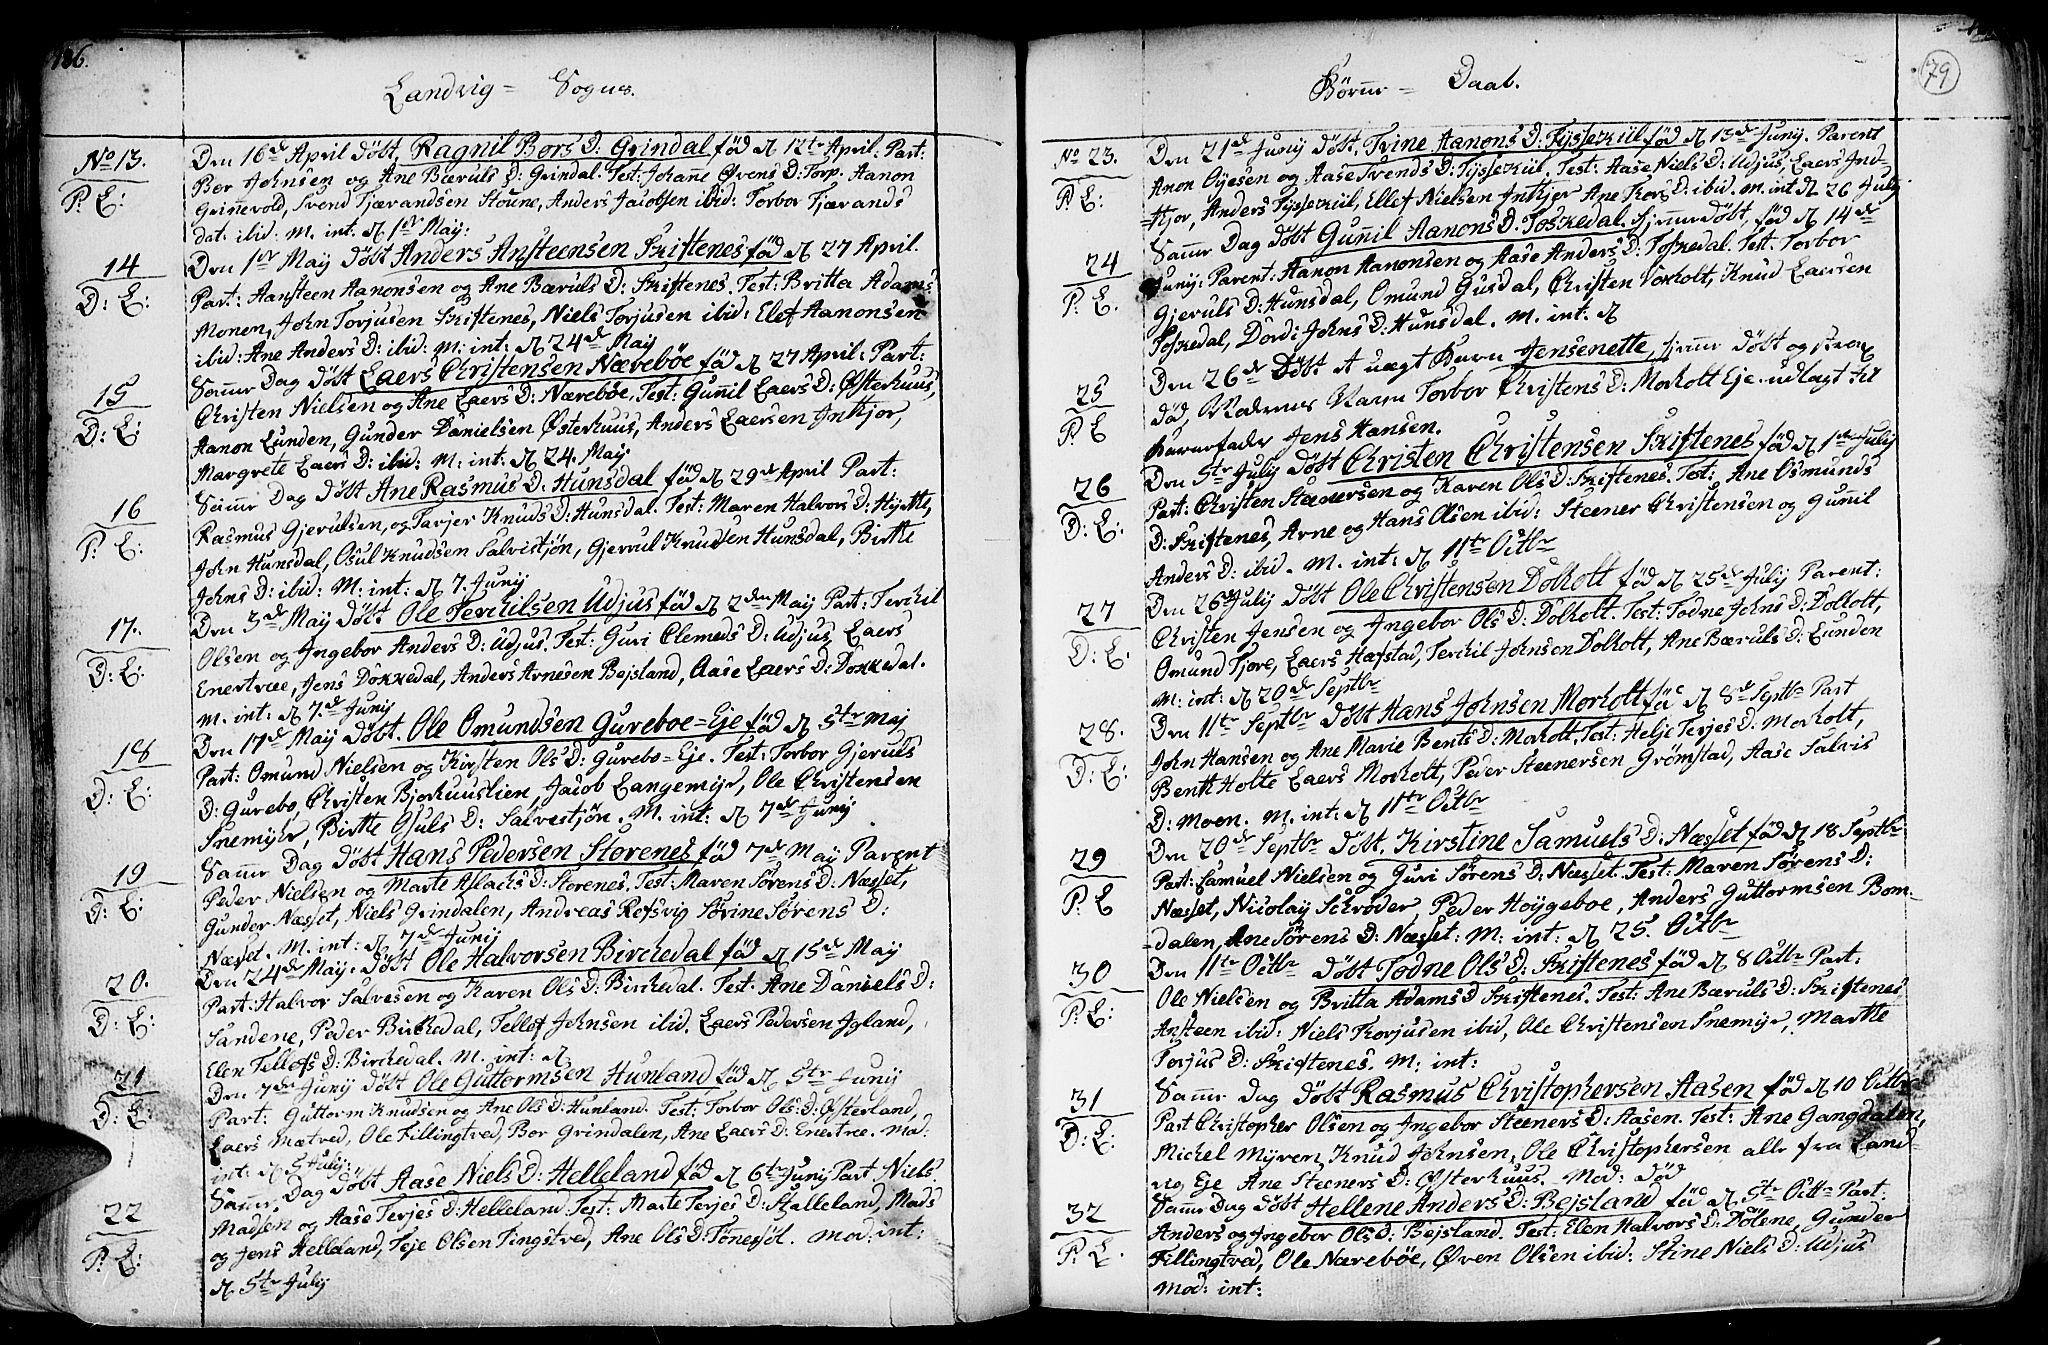 186.
Landvig = Sogns.
No 13.
P: E:
Den 16de April døbt, Ragnil Bors D: Grindal fød d 12te April: Part:
Bor Johnsen og Ane Bæruls D: Grindal. Test: Johane Øvens D: Torp. Aanon
Grinnevold, Svend Tjærandsen Stoune, Anders Jacobsen ibid: Torbor Tjærands
dat. ibid: M. int. d 1ste May:
14
D: E:
Den 1ste May døbt Anders Ansteensen Skiftenes fød d 27 April.
Part: Aansteen Aanonsen og Ane Bæruls D: Skiftenes. Test: Britta Adams
Monen, John Torjusen Skiftenes, Niels Torjusen ibid: Elef Aanonsen
ibid: Ane Anders D: ibid: M: int: d 24de May
15
D: E:
Samme Dag døbt Laers Christensen Nærebøe fød d 27 April: Part:
Christen Nielsen og Ane Laers D: Nærebøe. Test: Gunnil Laers D: Østerhuus,
Aanon Lunden, Gunder Danielsen Østerhuus, Anders Laersen Inkjor,
Margrete Laers D: ibid: M: int: d 24. May.
16
P: E:
Samme Dag døbt Ane Rasmus D: Hunsdal fød d 29de April Part:
Rasmus Gjerulsen, og Tarjer Knuds D: Hunsdal. Test: Maren Halvors D: Hytte,
John Hunsdal, Osul Knudsen Salvistjøn, Gjervul Knudsen Hunsdal, Birthe
Johns D: ibid: M: int: d 7. Junÿ
17.
D: E:
Den 3de Maÿ døbt Ole Terchilsen Udjus fød d 2den Maÿ Part: Terchil
Olsen og Ingebor Anders D: Udjus. Test: Guri Clemeds D: Udjus, Laers
Enertræe, Jens Dokkedal, Anders Arnesen Bejsland, Aase Laers D: Dokkedal.
M. int: d 7.de Junÿ
18
D: E:
Den 17de Maÿ døbt. Ole Omundsen Gureboe=Eje fød d 5te Maj
Part: Omund Nielsen og Kirsten Ols D: Gurebo=Eje. Test: Torbor Gjeruls
D: Gurebo, Christen Bjorhuuslien, Jacob Langemÿr, Ole Christensen
Snemÿhr, Birthe Gjuls D: Salvestjøn. M. int: d 7de Junÿ
19
D: E:
Samme Dag døbt Hans Pedersen Storenes fød 7de Maÿ Parent
Peder Nielsen og Marte Aslachs D: Storenes, Test: Maren Sørens D: Næsset,
Gunder Næsset, Niels Grindalen, Andreas Refsvig Sørine Sørens D:
Næsset. M. int: d 7de Junÿ
20.
D: E:
Den 24de Maÿ. døbt Ole Halvorsen Birchedal fød d 15de Maÿ
Part: Halvor Salvesen og Karen Ols D: Birchedal. Test: Ane Daniels D:
Sandene, Peder Birchedal, Tellof Johnsen ibid. Laers Pedersen Igland,
Elen Tellofs D: Birchedal. M. int: d
21
D: E:
Den 7de Junÿ døbt Ole Guttormsen Hunland fød d 5te Junÿ
Part: Guttorm Knudsen og Ane Ols D: Hunland. Test: Torbor Ols: D: Østerland,
Laers Mætved, Ole Fillingtved, Bor Grindalen, Ane Laers D: Enertree. Mod.
int: d 5 Julÿ:
22
P: E:
Samme Dag døbt Aase Niels D: Helleland fød d 6te Junÿ Part Niels
Madsen og Aase Terjes D: Helleland. Test: Marte Terjes D: Stalleland, Mads
og Jens Helleland, Teje Olsen Tingstved, Ane Ols D: Tønesøl. Mod: int:
d. 5te Julÿ
Børne = Daab.
79
No 23.
P: E:
Den 21de Junÿ døbt. Trine Aanons D: Fyssekiil fød d 13de Junÿ. Parent
Anon Oyesen og Aase Svends D: Fysseküil. Test: Aase Niels D: Udjus, Laers Ind-
kjor, Anders Fyssekiil, Ellef Nielsen Inkjer Ane Tors D: ibid. M. int d 26 Julÿ
24
P: E.
Samme Dag døbt Gunnil Aanons D. Foskedal. Hjemme døbt, fød d 14de
Junÿ: Parent: Aanon Aanonsen og Aase Anders D: Foskedal. Test: Torbor
Gjeruls D: Hunsdal, Omund Gusdal, Christen Voxholt, Knud Laersen
Foskedal, Dordi Johns D: Hunsdal. M. int: d
25
P: E
Den 26de Døbt et uægt Barn Jensenette, hjemme døbt og strax
død, Moderens Navn Torbor Christens D: Morholt Eje. udlagt til
Barnefader Jens Hansen.
26
D: E:
Den 5te Julÿ døbt Christen Christensen Skiftenes fød d 1ste Julÿ
Part: Christen Steenersen og Karen Ols D: Skiftenes. Test: Ane Osmunds
D: Skiftenes, Arne og Hans Olsen ibid: Steener Christensen og Gunnil
Anders D: ibid. M. int: d 11te Octbr
27
D: E:
Den 26 Julÿ døbt Ole Christensen Dolholt fød d 25de Julÿ Parent:
Christen Jensen og Ingebor Ols D: Dolholt. Test: Todne Johns D: Dolholt,
Omund Tjore, Laers Hæfstad, Terchil Johnsen Dolholt, Ane Bæruls D: Lunden
M: int: d 20de Septbr
28.
D: E:
Den 11te Septbr døbt Hans Johnsen Morholt fød d 8de Septbr Part
John Hansen og Ane Marie Bents D: Morholt. Test: Helje Terjes D: Morholt,
Benth Holte Laers Morholt, Peder Steenersen Grømstad, Aase Salvis
D: Moen. M. int: d 11te Octbr
29
P: E
Den 20de Septbr døbt, Kirstine Samuels D. Næsset fød d 18 Septbr
Part: Samuel Nielsen og Guri Sørens D: Næsset. Test: Maren Sørens D:
Næsset, Nicolaÿ Schrøder, Peder Hoygeboe, Anders Guttormsen Bom-
dalen, Ane Sørens D: Næsset: M: int: d 25. Octbr
30
P: E:
Den 11te Octbr døbt Todne Ols D: Skiftenes fød d 8 Octbr Part:
Ole Nielsen og Britta Adams D Skiftenes. Test: Ane Bæruls D: Skiftenes,
Ansteen ibid: Niels Torjusen ibid, Ole Christensen Snemÿr, Marthe
Torjus D: Skiftenes. M. int:
31
D: E:
Samme Dag døbt Rasmus Christophersen Aasen fød d 10 Octbr
Part Christopher Olsen og Ingebor Steeners D: Aasen. Test: Ane Gangdalen,
Michel Mÿren, Knud Johnsen, Ole Christophersen alle fra Land-
vig Eje Ane Steeners D: Østerhuus. Mod: død
32
P: E.
Samme Dag døbt Hellene Anders D: Bejsland fød d. 5te Octbr Part:
Anders og Ingebor Ols D: Bejsland. Test: Elen Halvors D: Dølene, Gunder
Fillingtved, Ole Nærebøe, Øven Olsen ibid: Stine Niels D: Udjus
Mod: int: